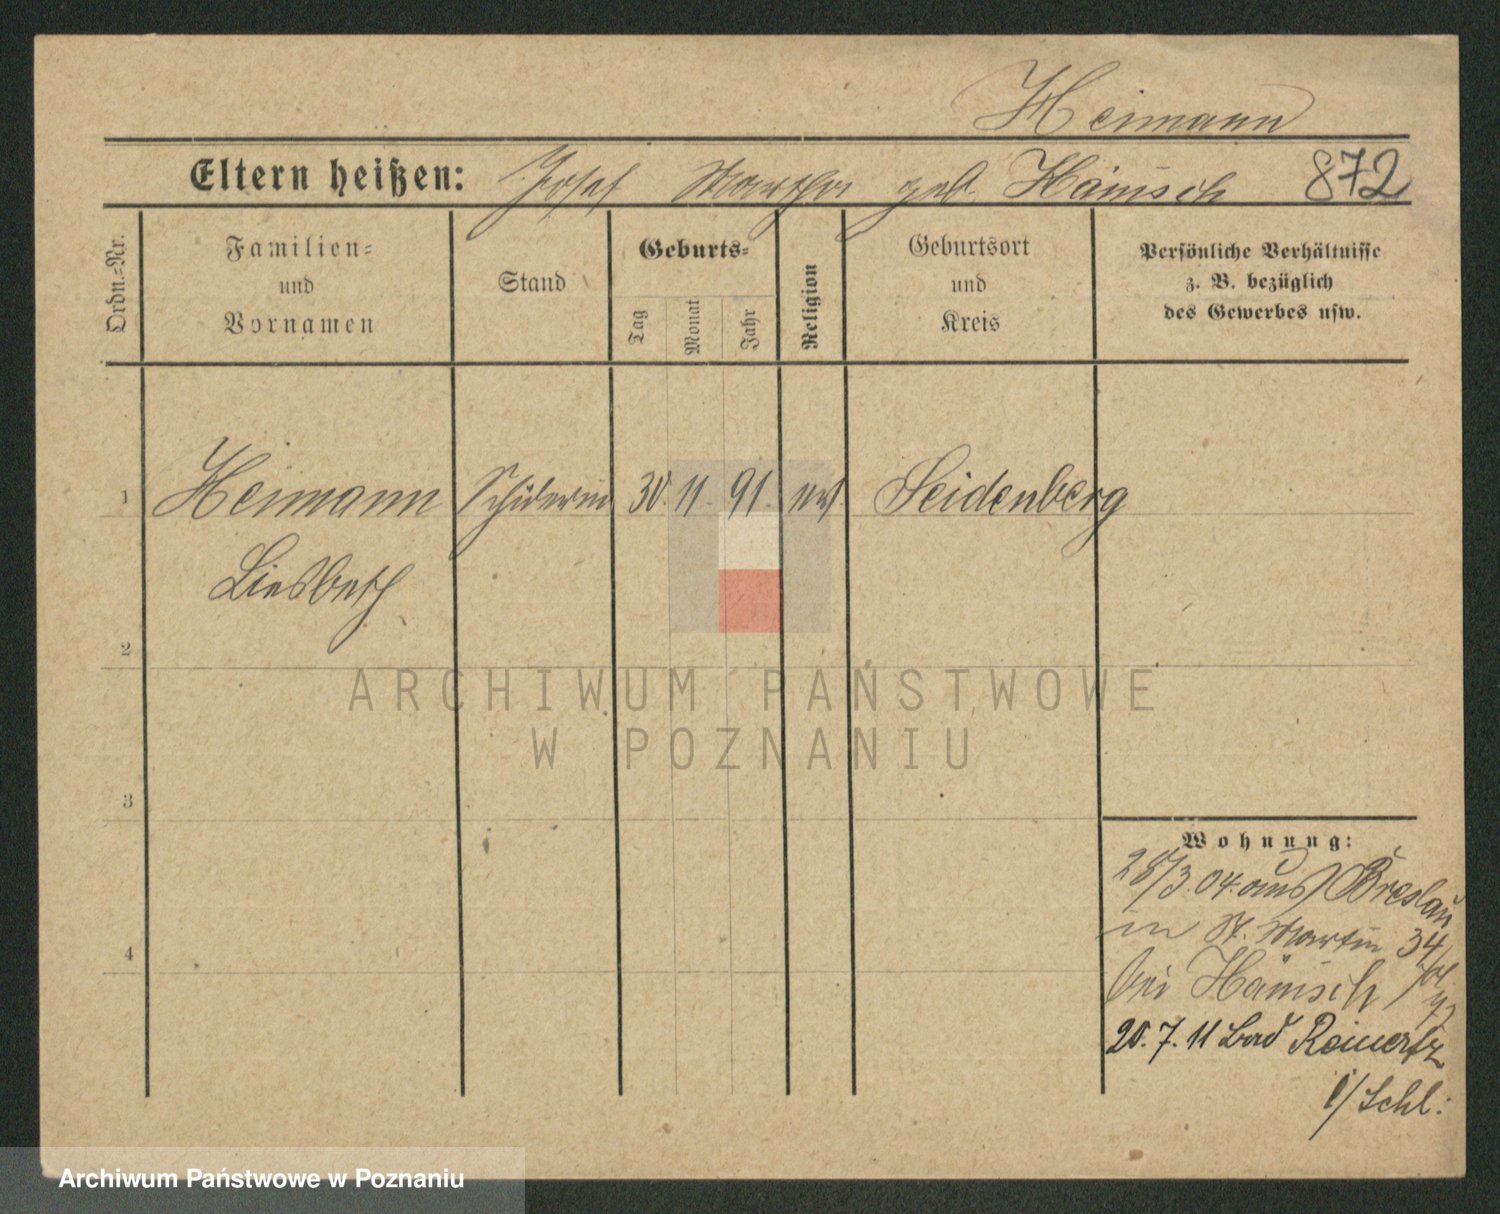 Heimann
Eltern heißen: Josef Martha geb. Hänisch 872
Ordn.=Nr.
Familien=
und
Vornamen
Stand
Geburts=
Tag
Monat
Jahr
Religion
Geburtsort
und
Kreis
Persönliche Verhältnisse
z. B. bezüglich
des Gewerbes usw.
1 Heimann Schülerin 30. 11. 91. Seidenberg
Liesbeth
2
3
4
ARCHIWUM PAŃSTWOWE
W POZNANIU
Wohnung:
28/3. 04. aus Breslau
in St. Martin 34
bei Hänisch
20. 7. 11 Bad Reinertz
i/ Schl:
Archiwum Państwowe w Poznaniu